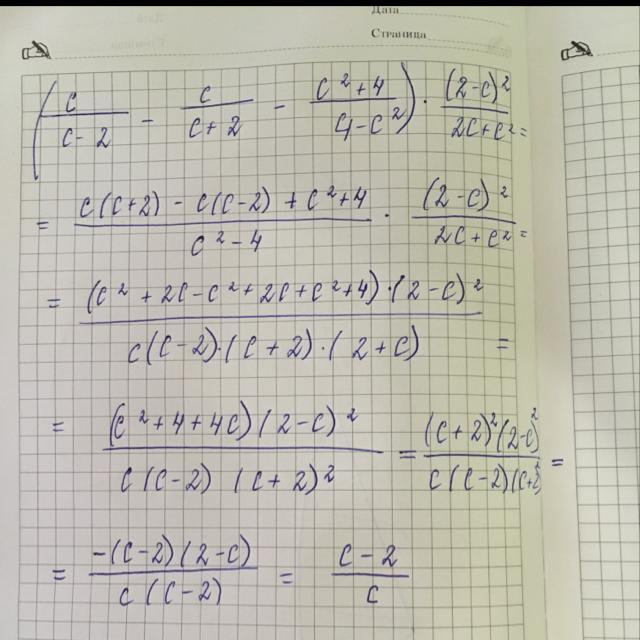 Дата
Страница
(c/(c-2) - c/(c+2) - (c²+4)/(4-c²)) · (2-c)²/(2c+c²) =
= (c(c+2) - c(c-2) + c²+4)/(c²-4) · (2-c)²/(2c+c²) =
= ((c² + 2c - c² + 2c + c² + 4) · (2-c)²)/(c(c-2)·(c+2)·(2+c)) =
= ((c²+4+4c)(2-c)²)/(c(c-2)(c+2)²) = ((c+2)²(2-c)²)/(c(c-2)(c+2)²) =
= (-(c-2)(2-c))/(c(c-2)) = (c-2)/c